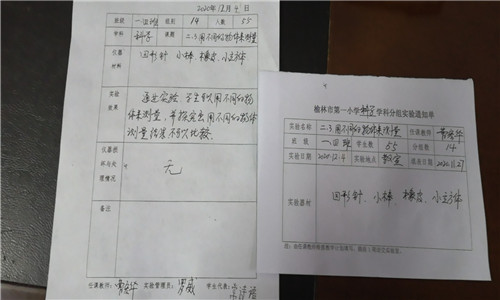 2020年12月4日
班级 一·四班 组别 14 人数 55
学科 科学 课题 二.3.用不同的物体来测量
仪器材料 回形针 小棒 橡皮 小立方体
实验效果 学生能用不同的物体来测量,并 用不同的物体测量结果不好比较.
仪器损坏与处理情况 无
备注
任课教师: 实验管理员: 学生代表:
榆林市第一小学科学学科分组实验通知单
实验名称 二.3.用不同的物体来测量 任课教师
班级 一.四班 学生数 55 分组数 14
实验日期 2020.12.4 实验地点 教室 通知日期 2020.11.27
实验器材 回形针、小棒 橡皮、小立方体